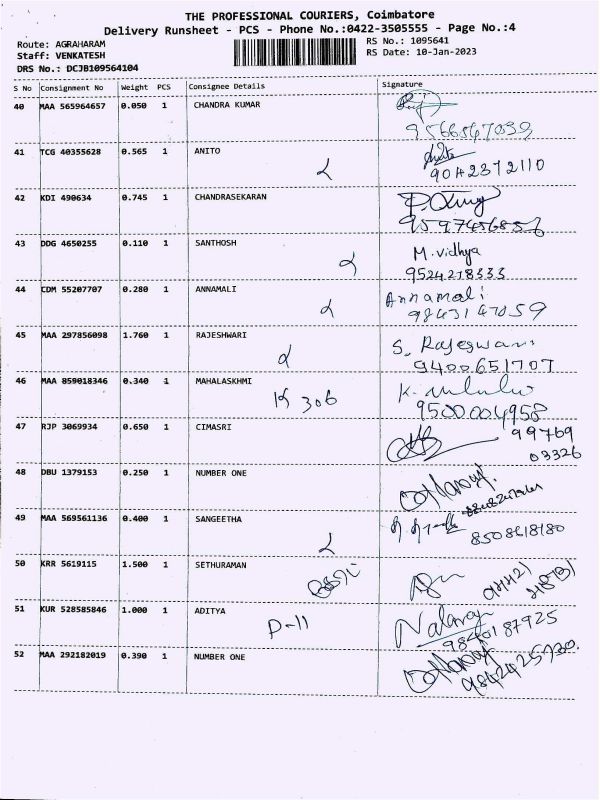 THE PROFESSIONAL COURIERS, Coimbatore
Delivery Runsheet - PCS - Phone No.:0422-3505555 - Page No.:4
Route: AGRAHARAM
Staff: VENKATESH
DRS No.: DCJB109564104
RS No.: 1095641
RS Date: 10-Jan-2023
S No Consignment No Weight PCS Consignee Details Signature
40 MAA 565964657 0.050 1 CHANDRA KUMAR
9566547039
41 TCG 40355628 0.565 1 ANITO
9042372110
42 KDI 490634 0.745 1 CHANDRASEKARAN
43 DDG 4650255 0.110 1 SANTHOSH M. vidhya
9524218333
44 CDM 55207707 0.280 1 ANNAMALI Annamali
9843147059
45 MAA 297856098 1.760 1 RAJESHWARI S. Rajeswari
9400651707
46 MAA 859018346 0.340 1 MAHALASKHMI
K 306 9500004958
47 RJP 3069934 0.650 1 CIMASRI 99769
03326
48 DBU 1379153 0.250 1 NUMBER ONE
49 MAA 569561136 0.400 1 SANGEETHA
8508618180
50 KRR 5619115 1.500 1 SETHURAMAN
51 KUR 528585846 1.000 1 ADITYA
P-11 Nataraj
9840187925
52 MAA 292182019 0.390 1 NUMBER ONE
9842425730